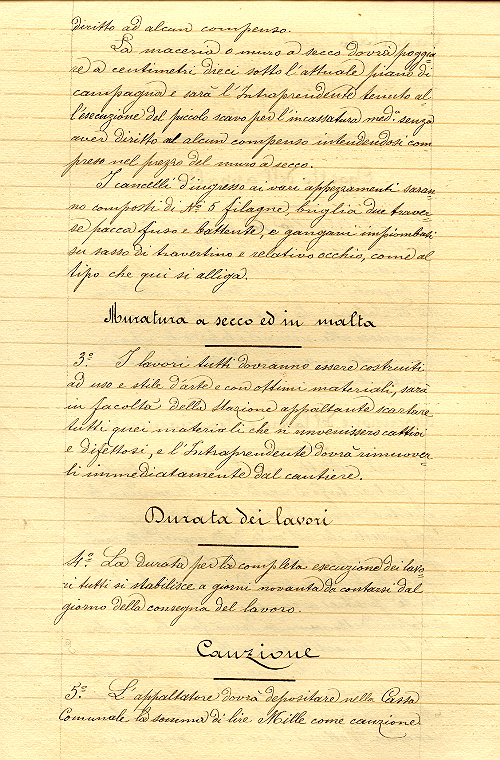 diritto ad alcun compenso.
La maceria o muro a secco dovrà poggia=
re a centimetri dieci sotto l'attuale piano di
campagna e sarà l'Intraprendente tenuto al=
l'esecuzione del piccolo scavo per l'incassatura med.ª senza
aver diritto al alcun compenso intendendosi com
preso nel prezzo del muro a secco.
I cancelli d'ingresso ai vari appezzamenti saran=
no composti di N.º 5 filagne, briglia due traver=
se pacca fuso e battente, e gangani impiombati
su sasso di travertino e relativo occhio, come al
tipo che qui si alliga.
Muratura a secco ed in malta
3.º I lavori tutti dovranno essere costruiti
ad uso e stile d'arte e con ottimi materiali, sarà
in facoltà della Stazione appaltante scartare
tutti quei materiali che si rinvenissero cattivi
e difettosi, e l'Intraprendente dovrà rimuover=
li immediatamente dal cantiere.
Durata dei lavori
4.º La durata per la completa esecuzione dei lavo=
ri tutti si stabilisce a giorni novanta da contarsi dal
giorno della consegna del lavoro.
Cauzione
5.º L'appaltatore dovrà depositare nella Cassa
Comunale la somma di lire Mille come cauzione